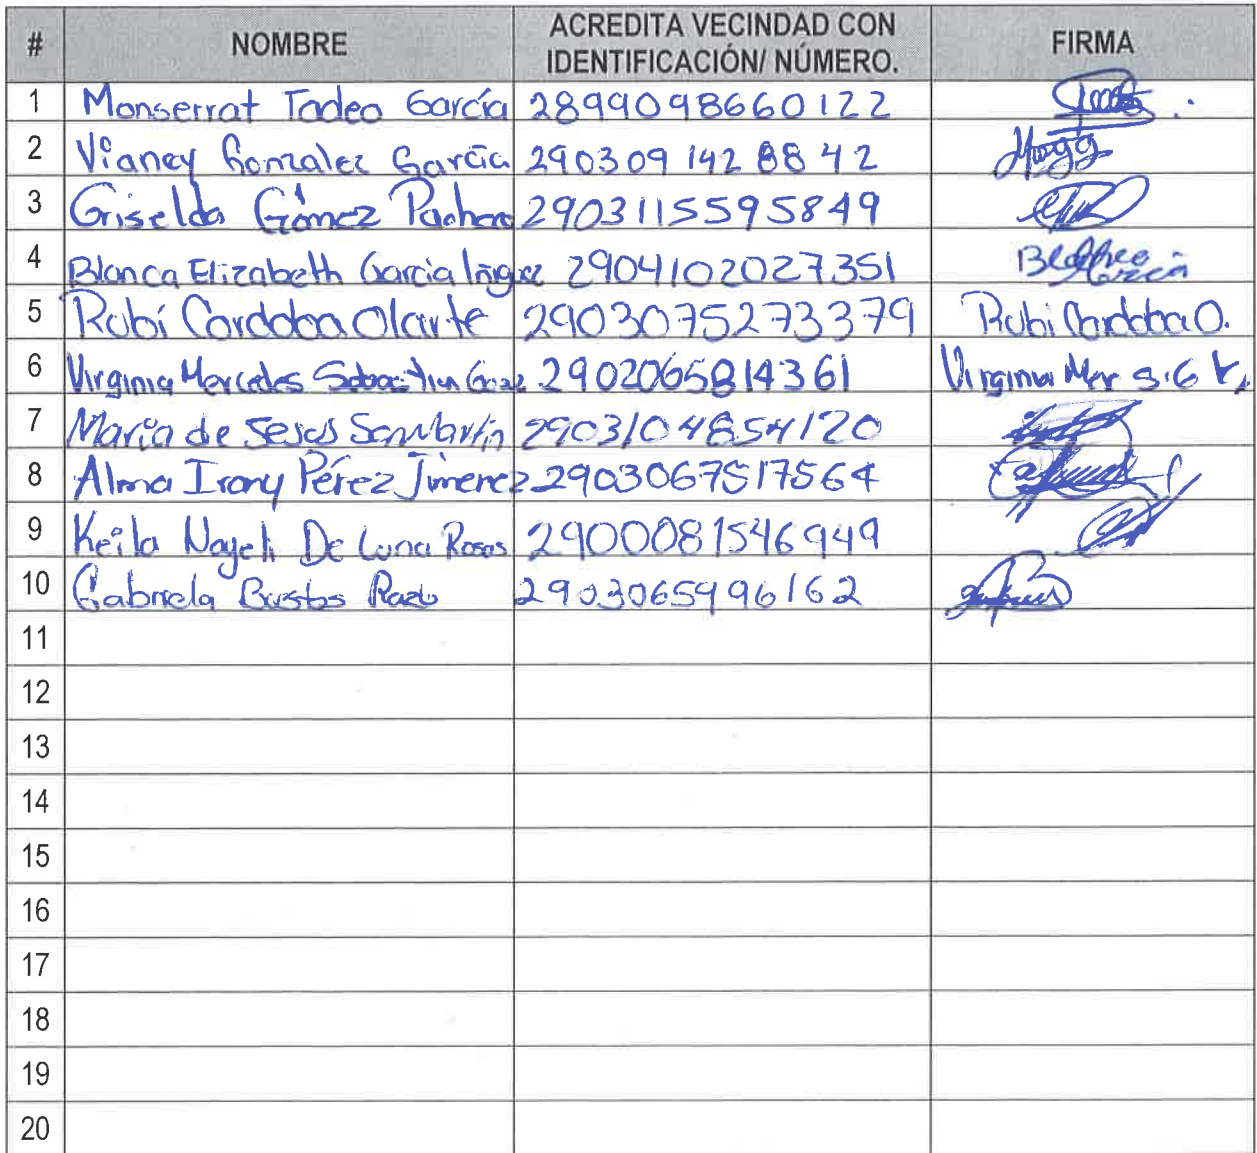 # NOMBRE ACREDITA VECINDAD CON IDENTIFICACIÓN/ NÚMERO. FIRMA
1 Monserrat Tadeo García 2899098660122
2 Vianey Gonzalez García 2903091428842
3 Griselda Gómez Pacheco 2903115595849
4 Blanca Elizabeth Garcia Iñiguez 2904102027351
5 Rubí Cordoba Olarte 2903075273379 Rubi Cordoba O.
6 Virginia Mercedes Sebastian 2902065814361 Virginia Mer S.G
7 María de Jesus SanMartín 2903104854120
8 Alma Irany Pérez Jimenez 2903067517564
9 Keila Nayeli De Luna Rosas 2900081546949
10 Gabriela Bustos Razo 2903065996162
11
12
13
14
15
16
17
18
19
20